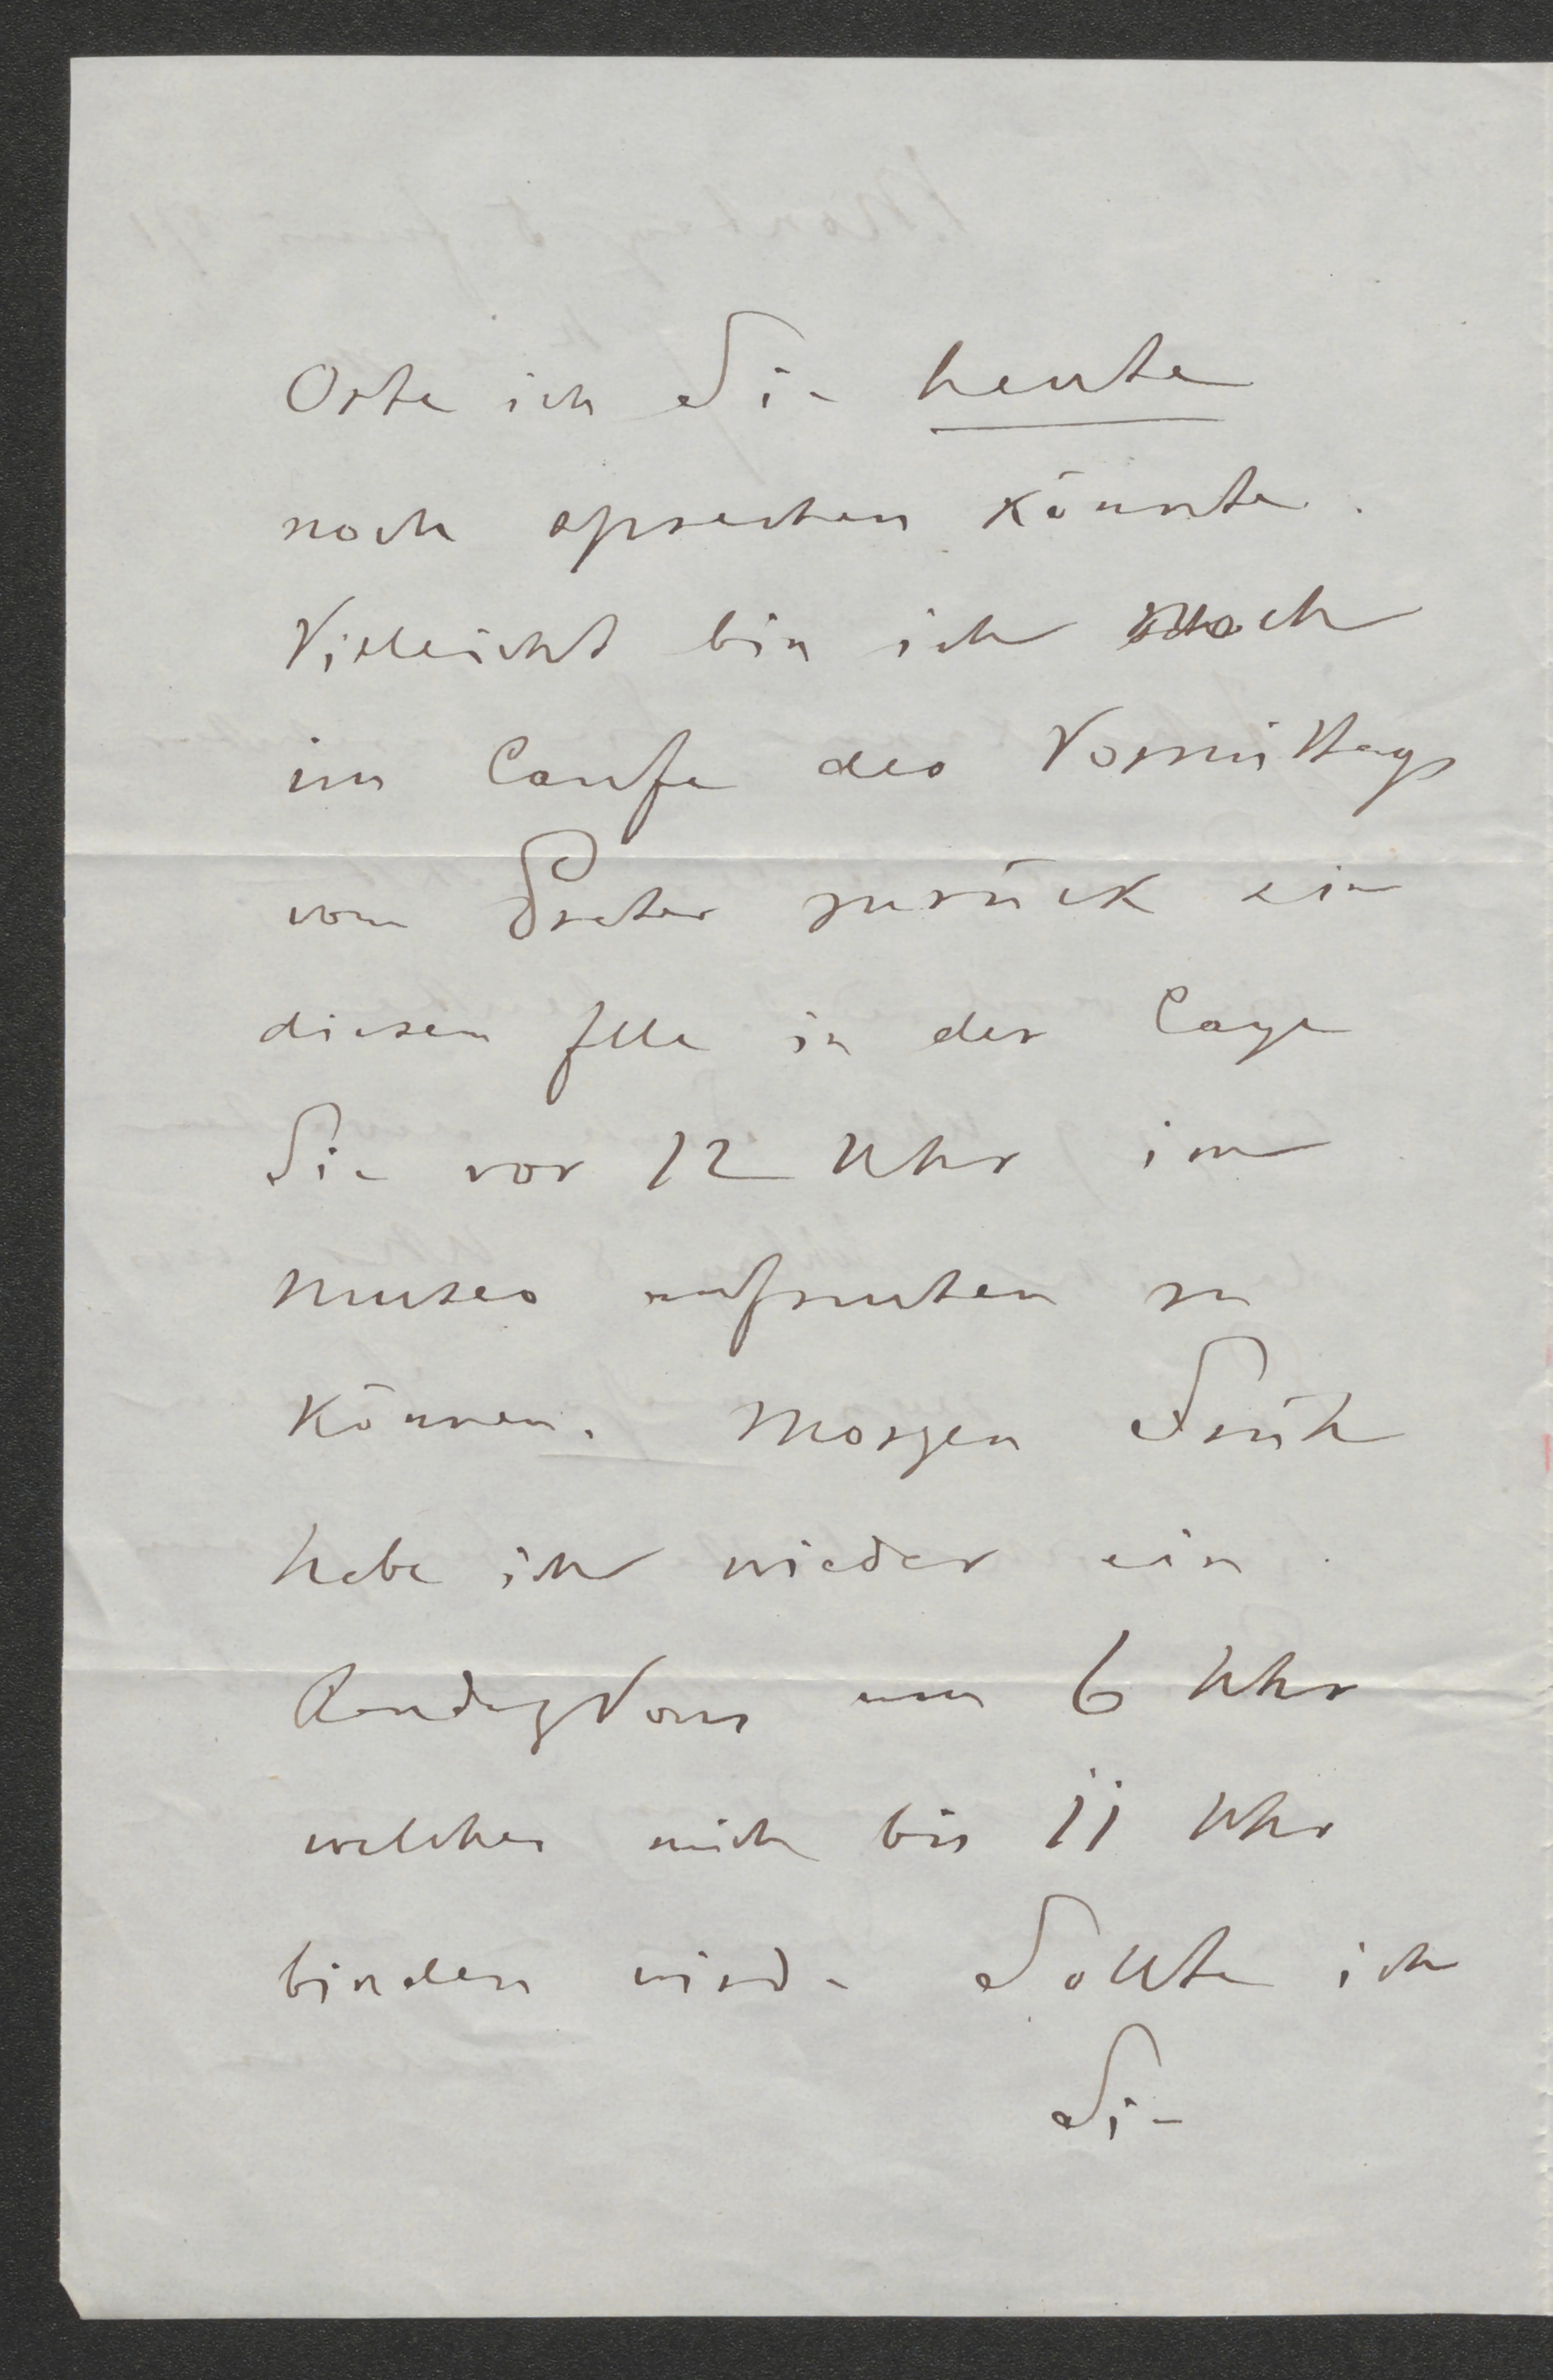 Orte ich Sie heute
noch sprechen könnte.
Vielleicht bin ich noch
im Laufe des Vormittags
vom Prater zurück
diesem Falle in der Lage
Sie vor 12 Uhr im
Museo aufsuchen zu
können. Morgen Früh
habe ich wieder ein
RendezVous um 6 Uhr
welches mich bis 11 Uhr
binden wird. Sollte ich
Sie